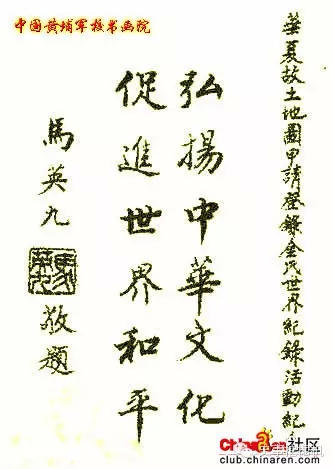 中国黄埔军校书画院
華夏故土地圖申請登錄金氏世界紀錄活動紀
弘揚中華文化
促進世界和平
馬英九
敬題
ChinaRen社区
club.chinaren.com